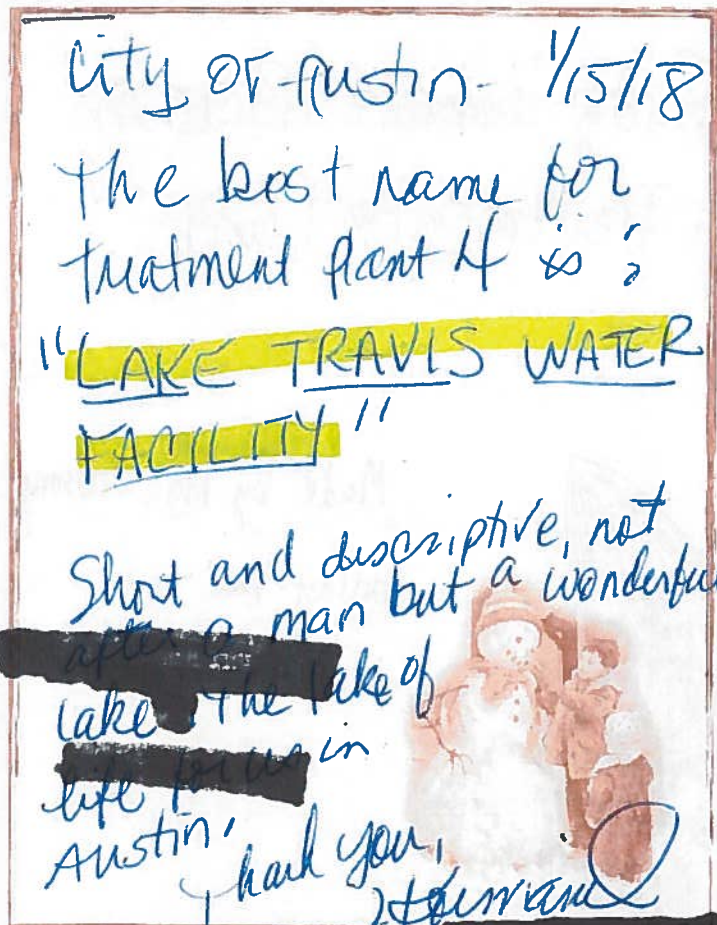 City of Austin- 1/15/18
The best name for
treatment plant 4 is :
"LAKE TRAVIS WATER
FACILITY"
Short and descriptive, not
after a man but a wonderful
lake. The lake of
life for us in
Austin.
Thank you,